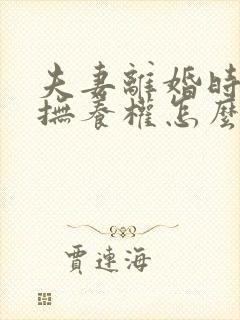 夫妻離婚時
撫養權怎麼
賈連海